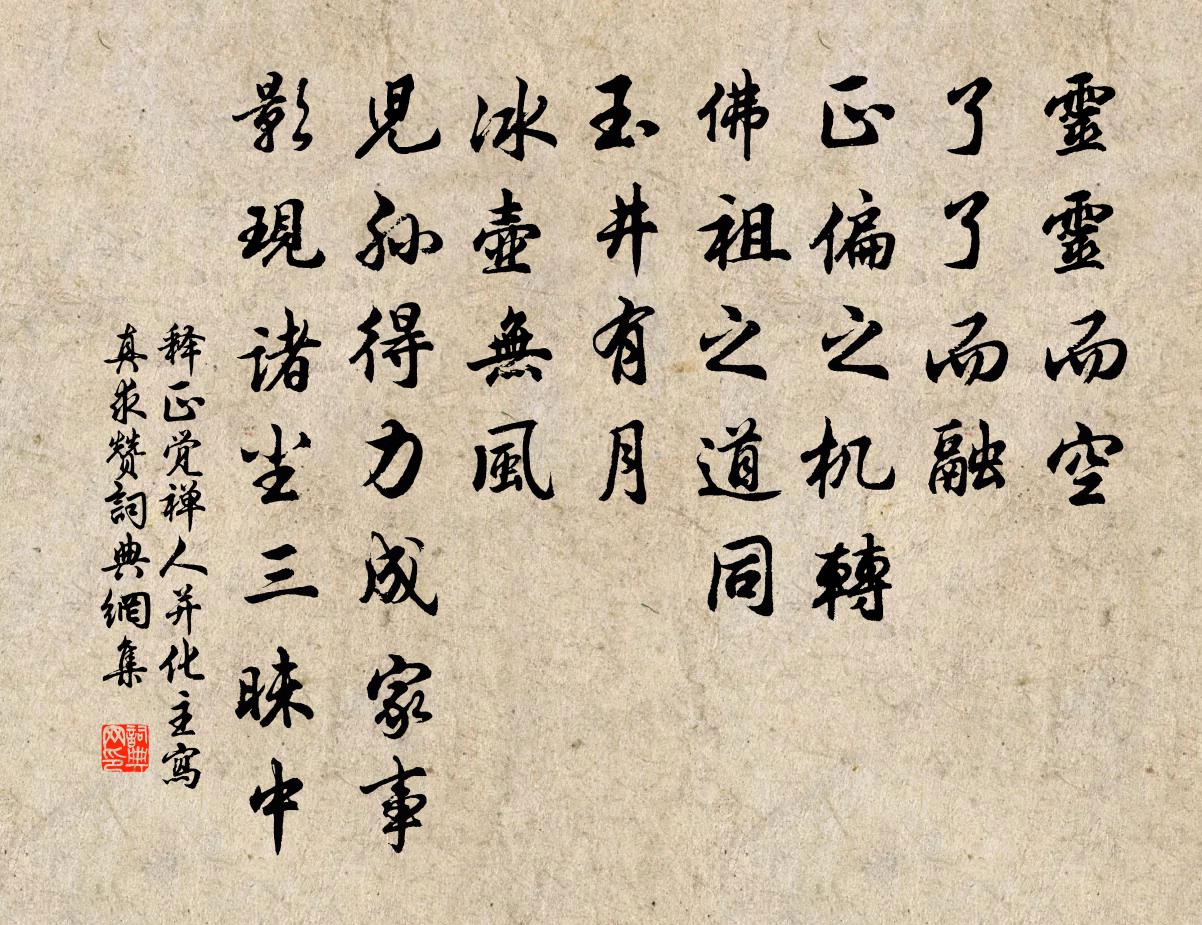 靈靈而空
了了而融
正偏之机轉
佛祖之道同
玉井有月
冰壺無風
児孙得力成家事
影現诸尘三昧中
释正觉禅人并化主寫
真求赞詞典網集
詞典网印